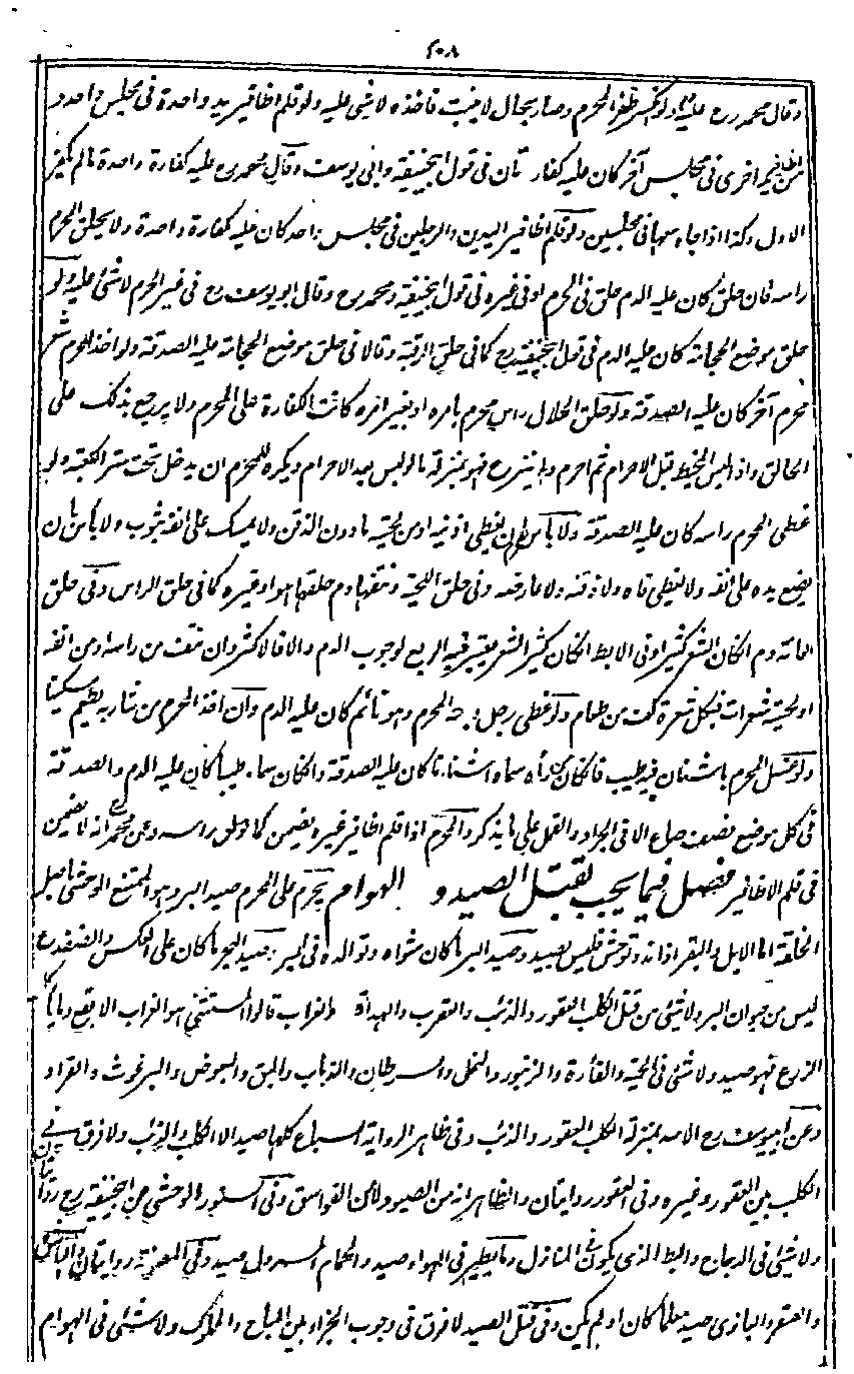 ٢٠٨
وقال محمد رح عليه ولو انكسر ظفر المحرم وصار بحال لا ينبت فاخذه لا شئ عليه ولو قلم اظافير يد واحدة فى مجلس واحد و
من اظافير اخرى فى مجلس آخر كان عليه كفارتان فى قول ابيحنيفة وابى يوسف وقال محمد رح عليه كفارة واحدة مالم يكفر
الاول وكذا اذا جامع مرتين فى مجلسين ولو قلم اظافير اليدين والرجلين فى مجلس واحد كان عليه كفارة واحدة ولا يحلق المحرم
راسه فان حلق كان عليه الدم حلق فى الحرم او فى غيره فى قول ابيحنيفة ومحمد رح وقال ابو يوسف رح فى غير الحرم لا شئ عليه ولو
حلق موضع الحجامة كان عليه الدم فى قول ابيحنيفة رح كما فى حلق الرقبة وقالا فى حلق موضع الحجامة عليه الصدقة ولو اخذ المحرم شعر
محرم آخر كان عليه الصدقة ولو حلق الحلال راس محرم بامره او بغير امره كانت الكفارة على المحرم ولا يرجع بذلك على
الحالق واذا لبس المخيط قبل الاحرام ثم احرم ولم ينزع فهو بمنزلة ما لو لبس بعد الاحرام ويكره للمحرم ان يدخل تحت ستر الكعبة ولو
غطى المحرم راسه كان عليه الصدقة ولا باس بان يغطى اذنيه او من لحيته ما دون الذقن ولا يمسك على انفه بثوب ولا باس بان
يضع يده على انفه ولا يغطى فاه ولا ذقنه ولا عارضه وفى حلق اللحية ونتفها دم حلقها هو او غيره كما فى حلق الراس وفى حلق
العانة دم انكان الشعر كثيرا وفى الابط انكان كثير الشعر يعتبر فيه الربع لوجوب الدم والا فالاكثر وان نتف من راسه او من انفه
او لحيته شعرات فبكل شعرة كف من طعام ولو غطى رجل وجه المحرم وهو نائم كان عليه الدم وان اخذ المحرم من شاربه يطعم مسكينا
ولو غسل المحرم باشنان فيه طيب فانكان من رآه سماه اشنانا كان عليه الصدقة وانكان سماه طيبا كان عليه الدم والصدقة
فى كل موضع نصف صاع الا فى الجراد والقمل على ما يذكر والمحرم اذا قلم اظافير غيره يضمن كما لو حلق راسه وعن محمد رح انه لا يضمن
فى قلم الاظافير فصل فيما يجب بقتل الصيد و الهوام يحرم على المحرم صيد البر وهو الممتنع الوحشى باصل
الخلقة اما الابل والبقر اذا ند وتوحش فليس بصيد وصيد البر ما كان مثواه وتوالده فى البر وصيد البحر ما كان على العكس والضفدع
ليس من حيوان البر ولا شئ فى قتل الكلب العقور والذئب والعقرب والحدأة والغراب قالوا المستثنى هو الغراب الابقع واما
الزرع فهو صيد ولا شئ فى الحية والفأرة والزنبور والنمل والسرطان والذباب والبق والبعوض والبرغوث والقراد
وعن ابيوسف رح الاسد بمنزلة الكلب العقور والذئب وفى ظاهر الرواية السباع كلها صيد الا الكلب والذئب ولا فرق فى
الكلب بين العقور وغيره وفى العقور روايتان والظاهر انه من الصيود لا من الفواسق وفى السنور الوحشى عن ابيحنيفة رح روايتان
ولا شئ فى الدجاج والبط الذى يكون فى المنازل وما يطير فى الهواء صيد والحمام المسرول صيد وفى روايتان
والصقر والبازى صيد معلما كان او لم يكن وفى قتل الصيد لا فرق فى وجوب الجزاء بين المباح والمملوك ولا شئ فى الهوام